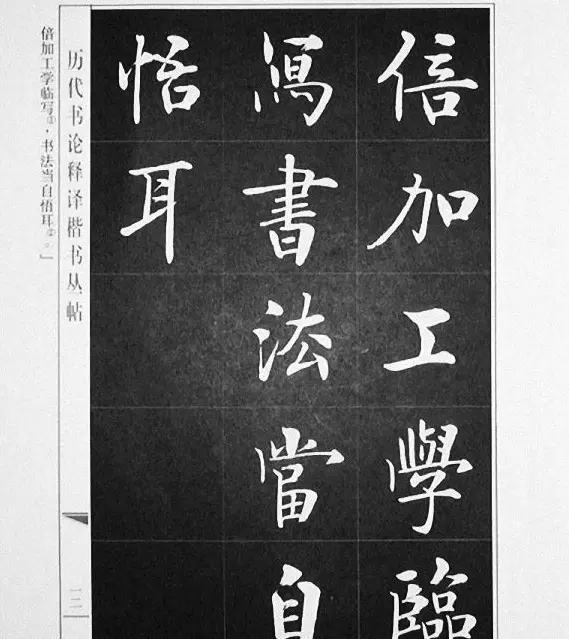 倍加工學臨
寫書法當自
悟耳
历代书论释译楷书丛帖
三
倍加工学临写②,书法当自悟耳②。」